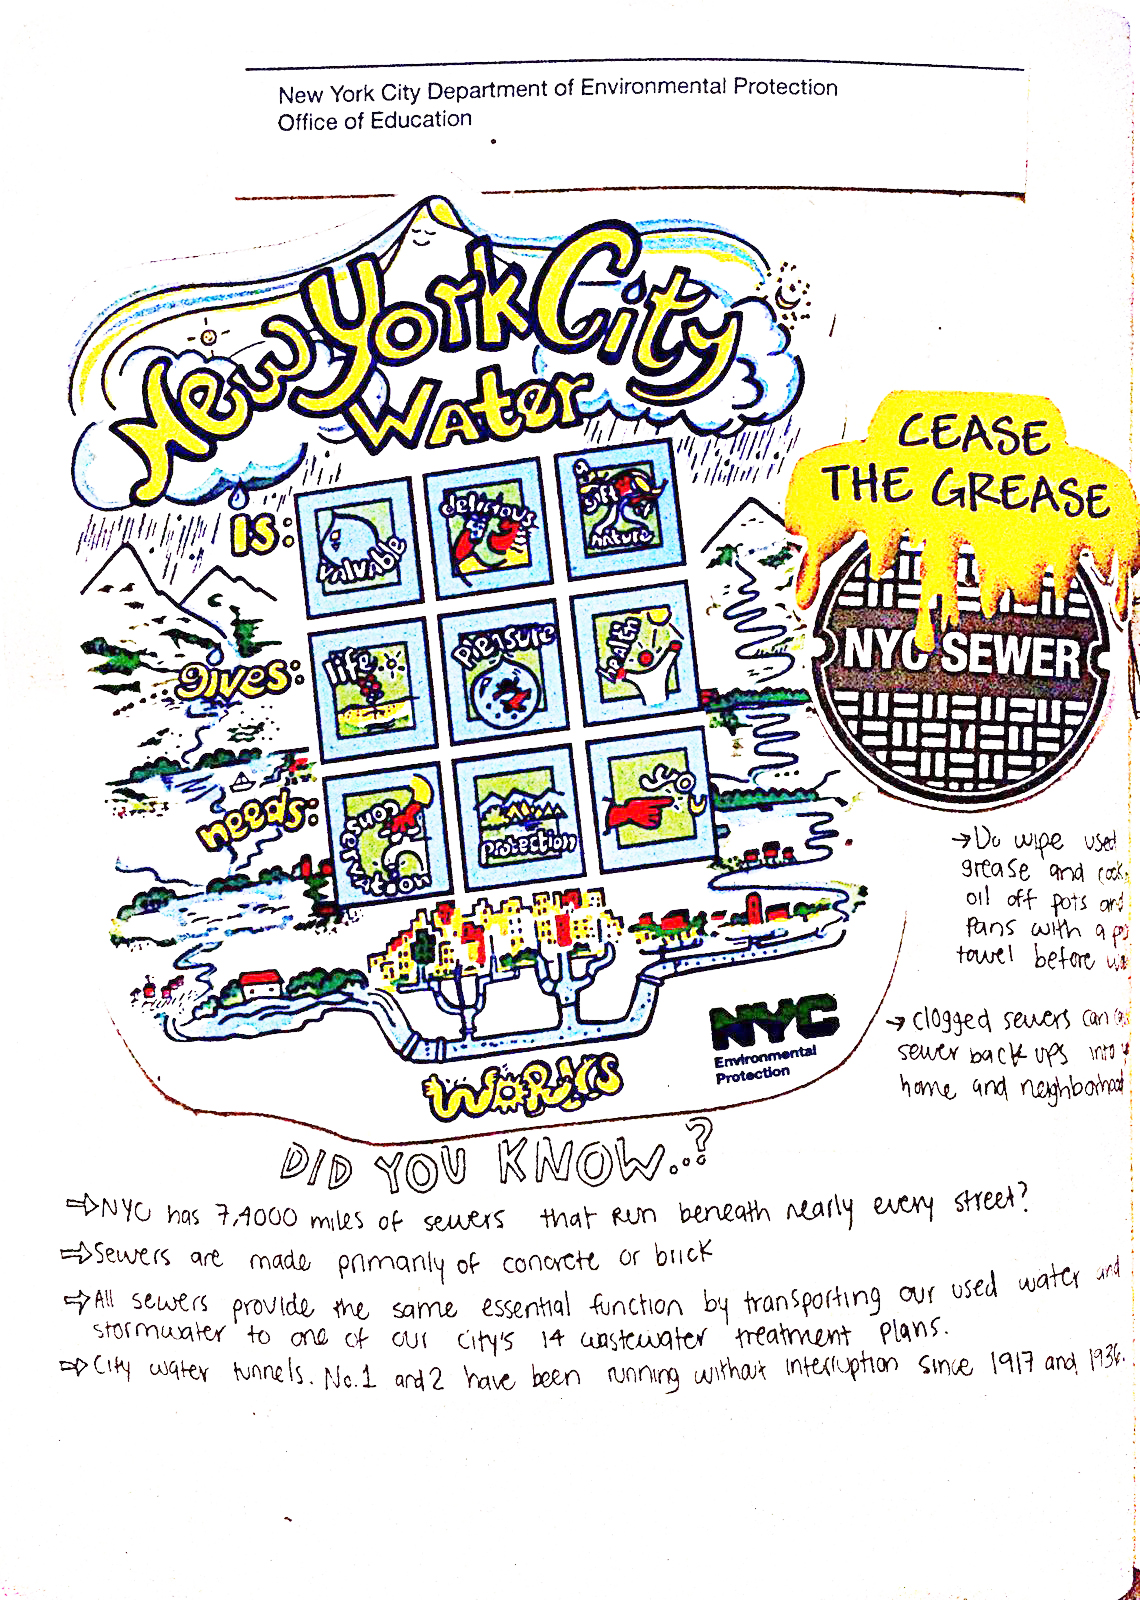 New York City Department of Environmental Protection
Office of Education
New York City
Water
is:
valuable
delicious
gift of
nature
gives:
life
pleasure
health
needs:
conservation
protection
you
works
NYC
Environmental
Protection
CEASE
THE GREASE
NYC SEWER
→ Do wipe used
grease and
oil off pots
pans with a
towel before
→ clogged sewers can
sewer back ups into
home and neighborhood
DID YOU KNOW..?
⇒ NYC has 7,4000 miles of sewers that run beneath nearly every street?
⇒ Sewers are made primarily of concrete or brick
⇒ All sewers provide the same essential function by transporting our used water and
stormwater to one of our city's 14 wastewater treatment plans.
⇒ City water tunnels. No.1 and 2 have been running without interruption since 1917 and 1936.